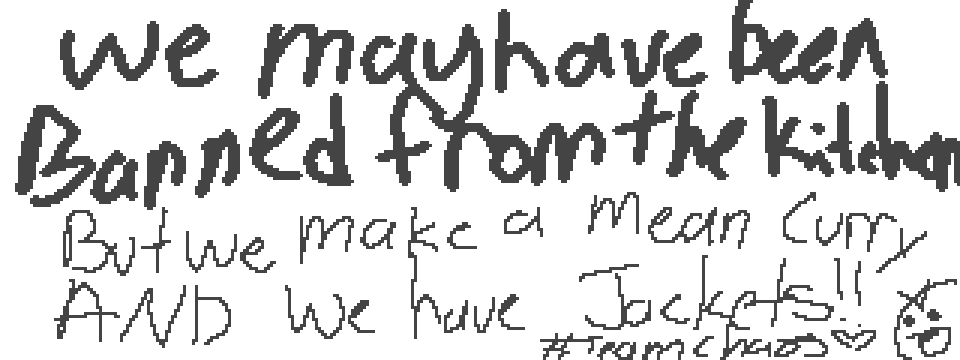 We may have been
Banned from the kitchen
But we make a Mean Curry
AND We have Jackets!!
#Teamchaos